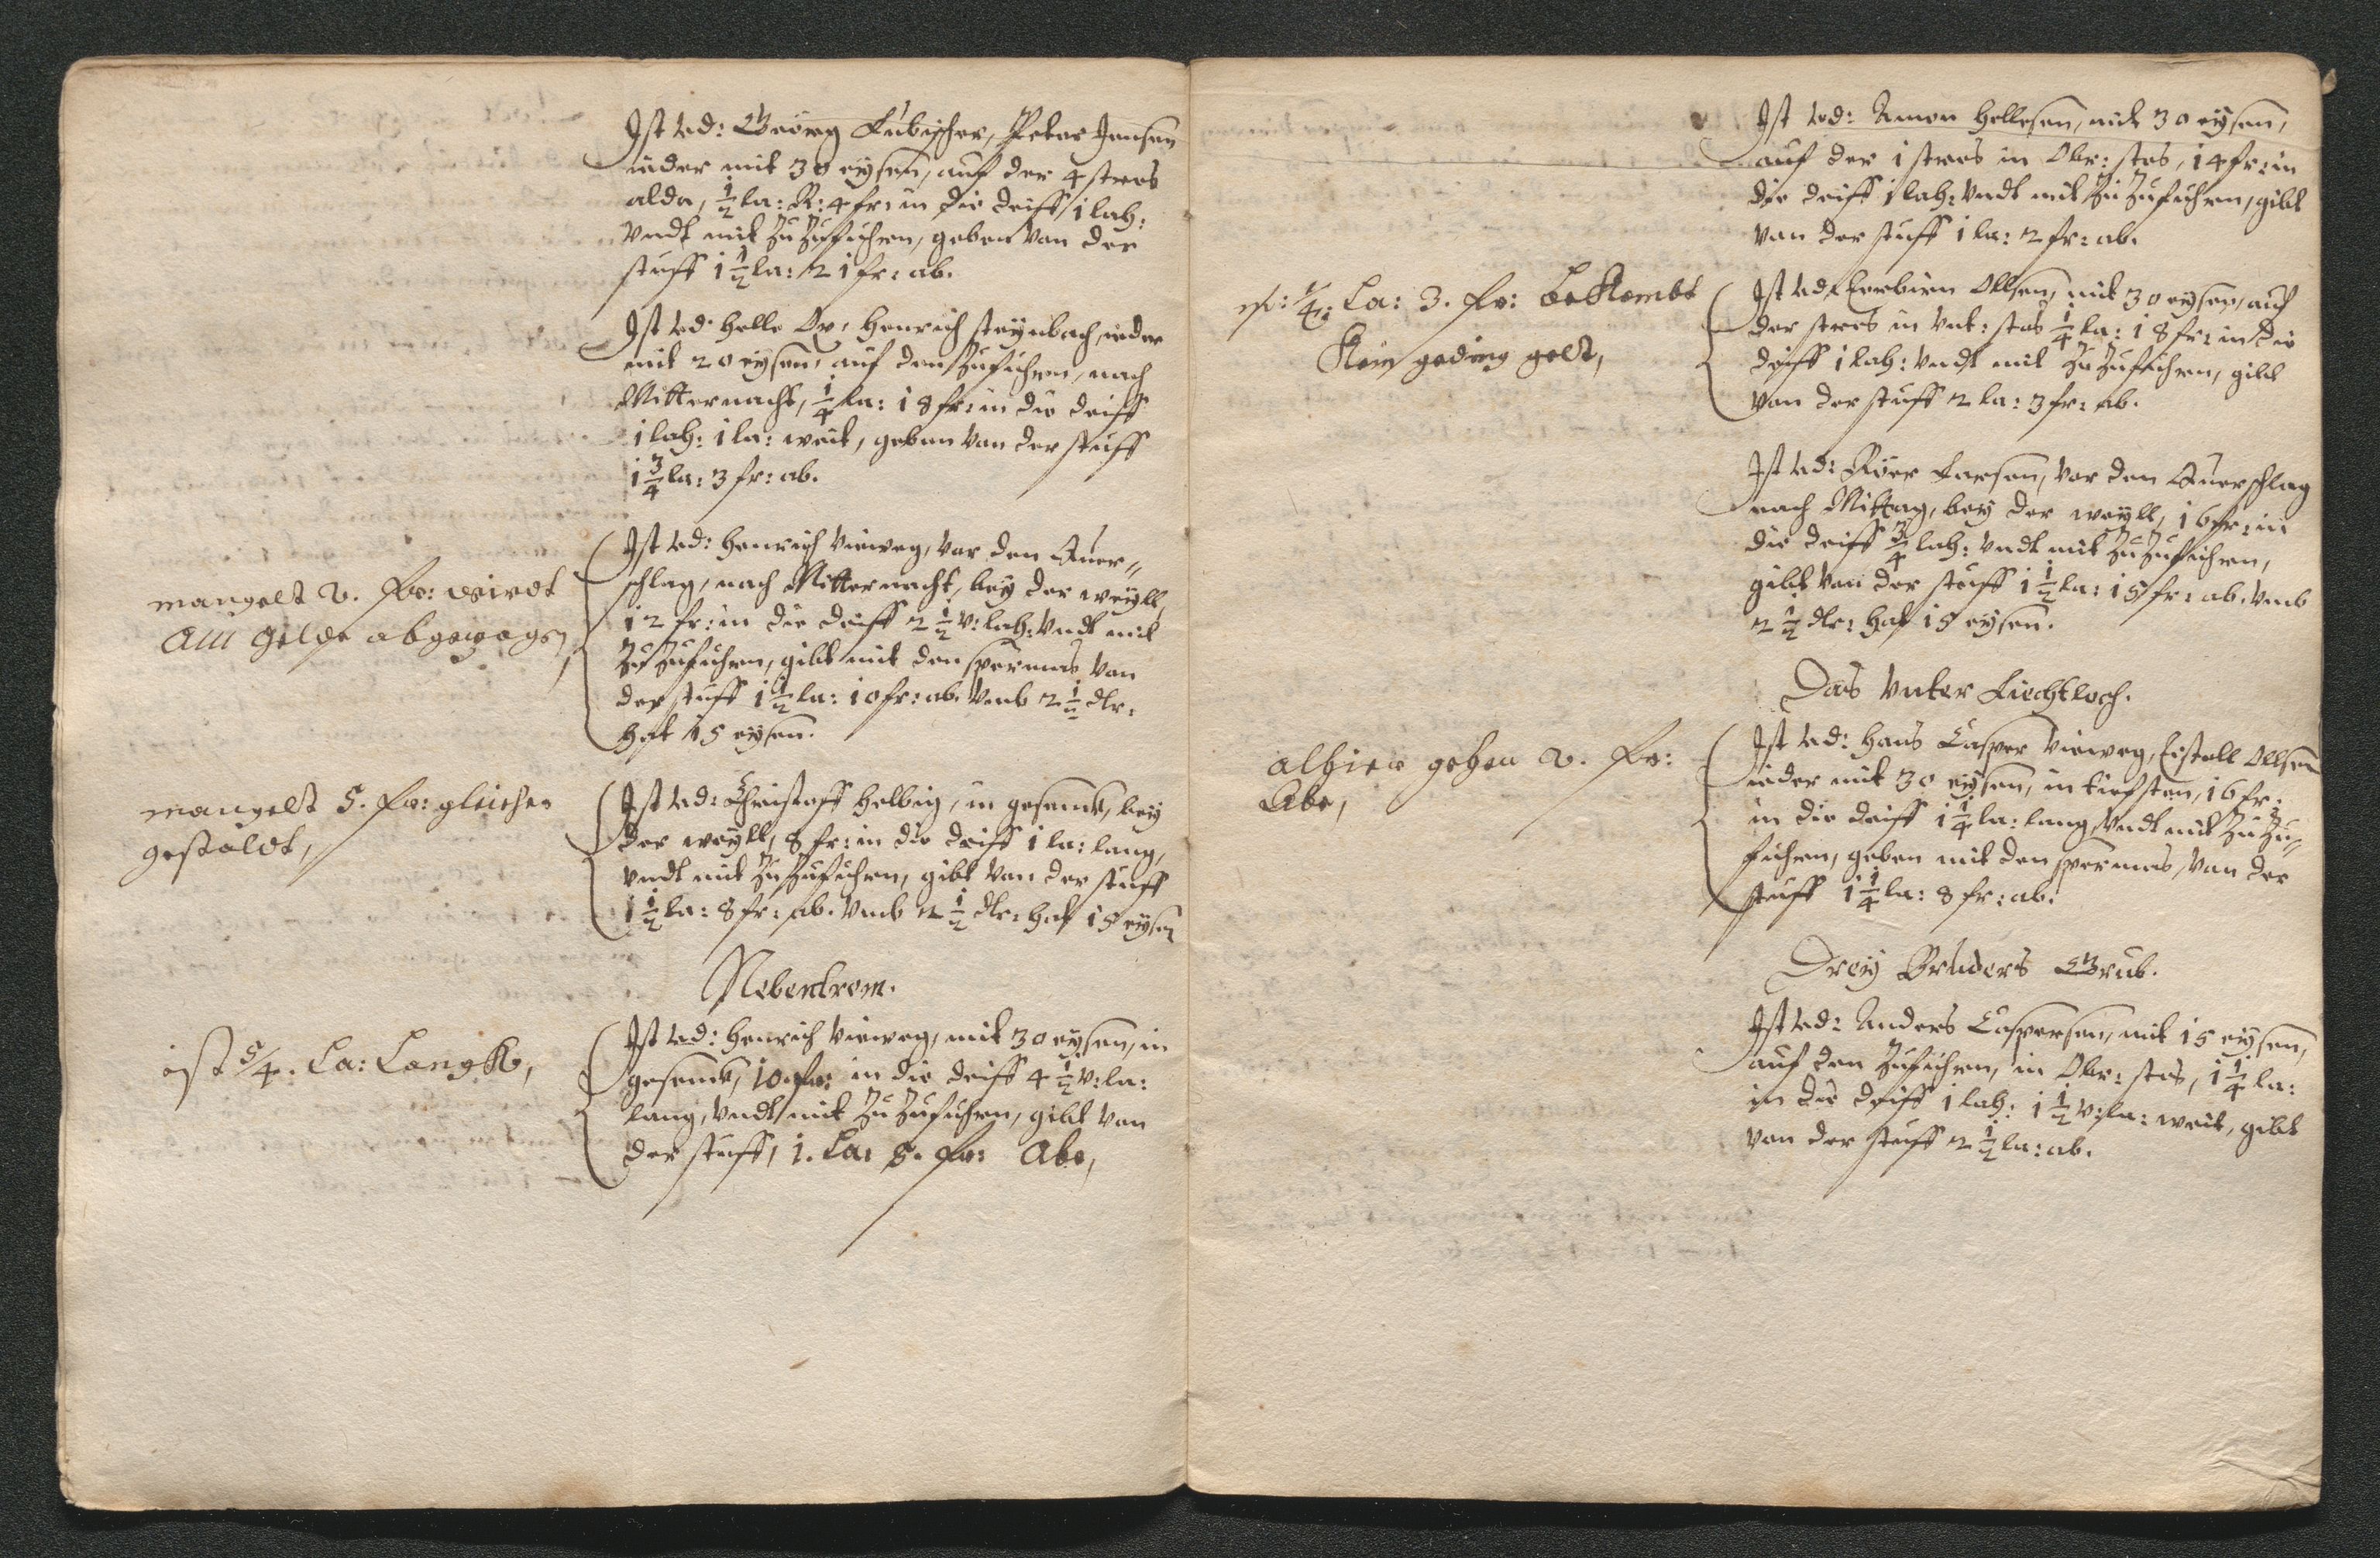 Ist ad: Georg Kubischer, Peter Jensen
ieder mit 30 eysen, auf der 4 stros
alda, 1/2 la: R: 4 fr: in die deiff 1 lah:
vndt mit zu Zufuhren, geben von der
stuff 1 1/2 la: 2 1 fr: ab.
Ist ad: Helle Ox, Henrich Steynbach, ieder
mit 20 eysen, auf den Zufuhren, nach
Mitternacht, 1/4 la: 18 fr: in die deiff
1 lah: 1 la: weit, geben von der stuff
1 3/4 la: 3 fr: ab.
mangelt 2. fr: wirdt
am gelde abgezogen,
Ist ad: Henrich Vieweg, vor den Quer„
schlag, nach Mitternacht, bey der weyll,
12 fr: in die deiff 2 1/2 v: lah: vndt mit
zu Zufuhren, gibt mit den spermas von
der stuff 1 1/2 la: 10 fr: ab. vmb 2 1/2 dlr:
hat 15 eysen.
mangelt 5. fr: gleicher
gestaldt,
Ist ad: Christoff Helbig, in gesenck, bey
der weyll, 8 fr: in die deiff 1 la: lang,
vndt mit zu Zufuhren, gibt von der stuff
1 1/2 la: 8 fr: ab. vmb 2 1/2 dlr: hat 15 eysen
Nebentrom.
ist 5/4. La: Langk,
Ist ad: Henrich Vieweg, mit 30 eysen, in
gesenck, 10 fr: in die deiff 4 1/2 v: la:
lang, vndt mit zu Zufuhren, gibt von
der stuff, 1. La: 5. fr: Abe,
Ist ad: Amon Hellesen, mit 30 eysen,
auf der 1 stros in Obr: stos, 14 fr: in
die deiff 1 lah: vndt mit zu Zufuhren, gibt
von der stuff 1 la: 2 fr: ab.
5/4: La: 3. fr: bekombt
Kein geding gelt,
Ist ad: Torbiern Ollsen, mit 30 eysen, auf
der stros in vnt: stos 1/4 la: 18 fr: in die
deiff 1 lah: vndt mit zu Zufuhren, gibt
von der stuff 2 la: 3 fr: ab.
Ist ad: Röer Larsen, vor den Querschlag
nach Mittag, bey der weyll, 16 fr: in
die deiff 3/4 lah: vndt mit zu Zufuhren,
gibt von der stuff 1 1/2 la: 15 fr: ab. vmb
2 1/2 dlr: hat 15 eysen.
Das Vnter Liechtloch.
alhier gehen 2. fr:
Abe,
Ist ad: Hans Casper Vieweg, Ollsen
ieder mit 30 eysen, in tiefsten, 16 fr:
in die deiff 1 1/4 la: lang, vndt mit zu Zu„
fuhren, geben mit den spermas, von der
stuff 1 1/4 la: 8 fr: ab.
Drey Brüders Grub.
Ist ad: Anders Caspersen, mit 15 eysen,
auf den Zufuhren, in Obr: stos, 1 1/4 la:
in die deiff 1 lah: 1 1/2 v: la: weit, gibt
von der stuff 2 1/2 la: ab.